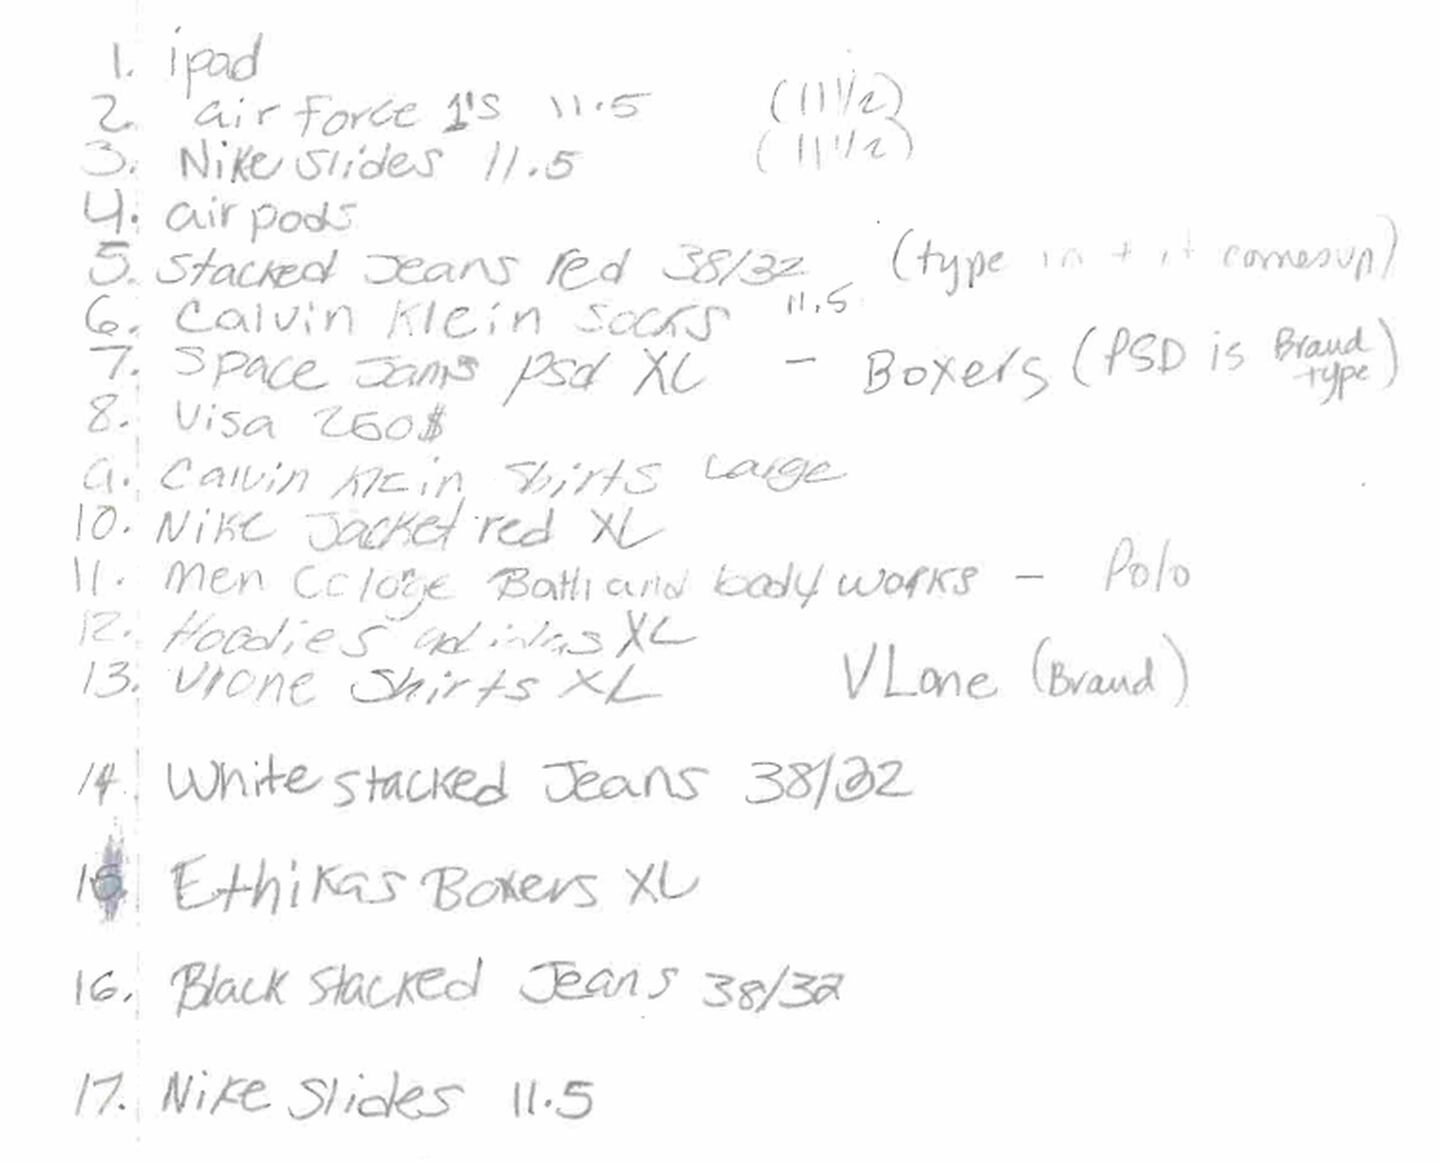 1. ipad
2. air force 1's 11.5 (11 1/2)
3. Nike slides 11.5 (11 1/2)
4. air pods
5. Stacked Jeans red 38/32 (type in + it comes up)
6. Calvin Klein socks 11.5
7. Space Jams psd XL - Boxers (PSD is Brand type)
8. Visa 250$
9. Calvin Klein Shirts Large
10. Nike Jacket red XL
11. men Bath and body works - Polo
12. Hoodies adidas XL
13. Vlone Shirts XL VLone (Brand)
14 White stacked Jeans 38/32
15 Ethikas Boxers XL
16. Black stacked Jeans 38/32
17. Nike Slides 11.5